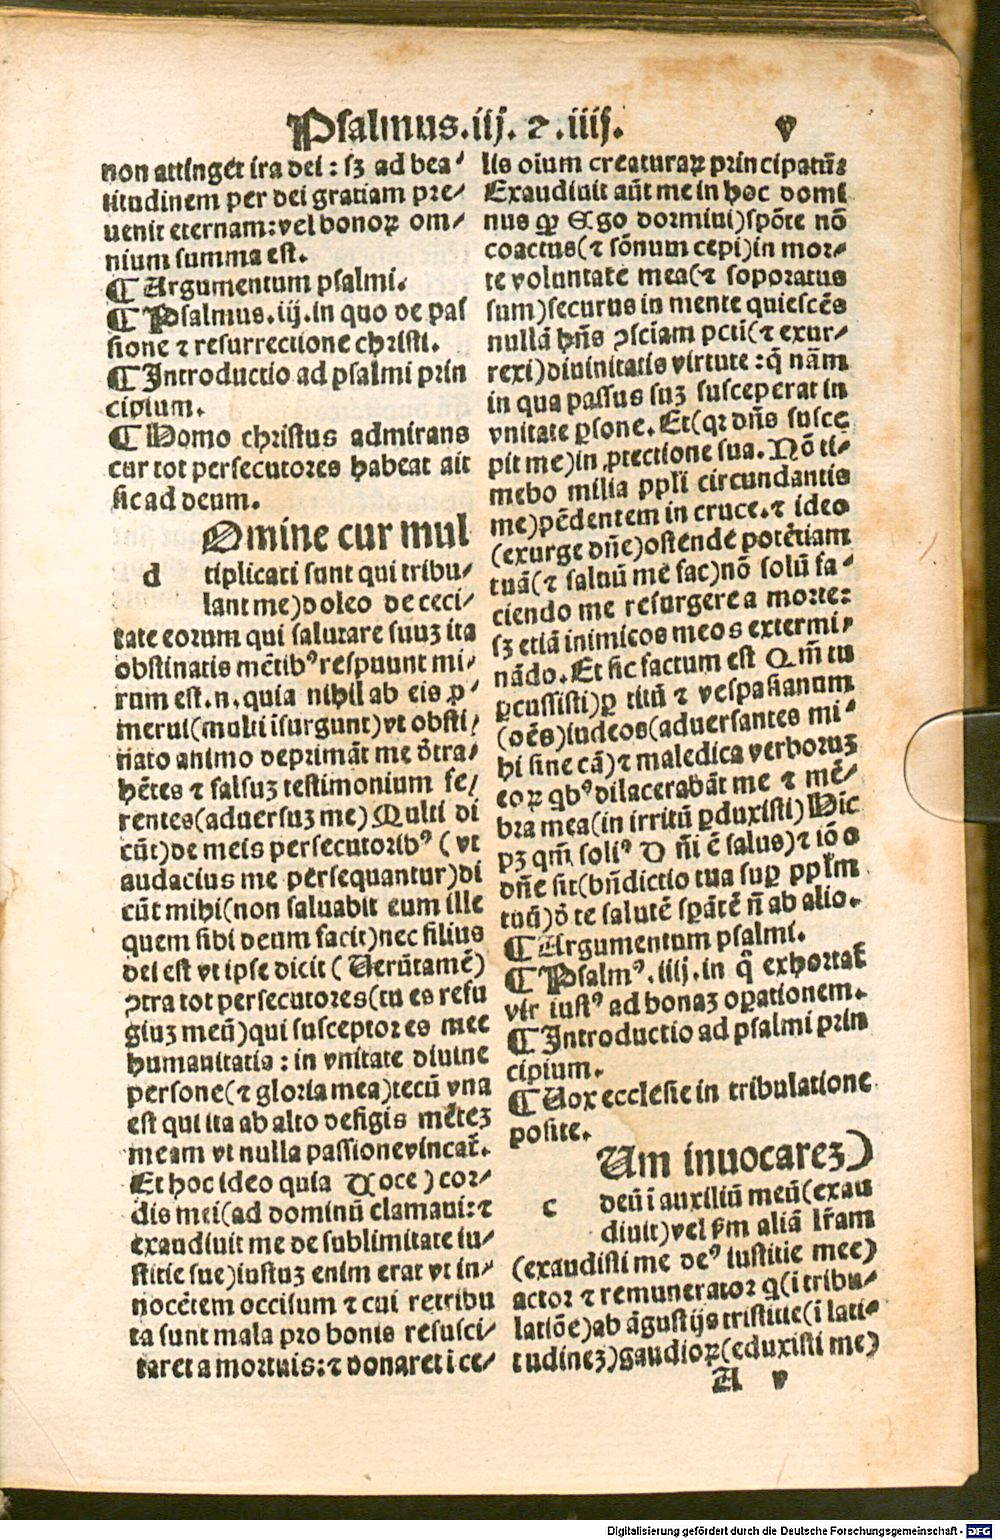 Psalmus.iij. ⁊ .iiij. v
non attinget ira dei : sꝫ ad bea⸗
titudinem per dei gratiam pre⸗
uenit eternam: vel bonoꝝ om⸗
nium summa est.
¶ Argumentum psalmi.
¶ Psalmus.iij.in quo de pas
sione ⁊ resurrectione christi.
¶ Introductio ad psalmi prin
cipium.
¶ Homo christus admirans
cur tot persecutores habeat ait
sic ad deum.
Omine cur mul
d tiplicati sunt qui tribu⸗
lant me)doleo de ceci⸗
tate eorum qui salutare suuꝫ ita
obstinatis mētibꝰ respuunt mi⸗
rum est.n. quia nihil ab eis ꝓ⸗
merui(multi īsurgunt)vt obsti⸗
nato animo deprimāt me ↄ̄tra⸗
hētes ⁊ falsuꝫ testimonium fe⸗
rentes(aduersuꝫ me) Multi di
cūt)de meis persecutoribꝰ ( vt
audacius me persequantur)di
cūt mihi(non saluabit eum ille
quem sibi deum facit)nec filius
dei est vt ipse dicit ( Uerūtamē)
ↄtra tot persecutores(tu es refu
giuꝫ meū)qui susceptor es mee
humanitatis : in vnitate diuine
persone(⁊ gloria mea)tecū vna
est qui ita ab alto defigis mēteꝫ
meam vt nulla passione vincat̄.
Et hoc ideo quia Uoce ) cor⸗
dis mei(ad dominū clamaui:⁊
exaudiuit me de sublimitate iu⸗
stitie sue)iustuꝫ enim erat vt in⸗
nocētem occisum ⁊ cui retribu
ta sunt mala pro bonis resusci⸗
taret a mortuis:⁊ donaret i ce⸗
lis oīum creaturaꝝ principatū:
Exaudiuit aūt me in hoc domi
nus qꝛ Ego dormiui)spōte nō
coactus(⁊ sōnum cepi)in mor⸗
te voluntate mea(⁊ soporatus
sum)securus in mente quiescēs
nullā hn̄s ↄsciam pctī(⁊ exur⸗
rexi)diuinitatis virtute : q̄ nām
in qua passus suꝫ susceperat in
vnitate ꝑsone. Et(qꝛ dn̄s susce
pit me)in ꝓtectione sua. Nō ti⸗
mebo milia ppl̄i circundantis
me)pēdentem in cruce. ⁊ ideo
(exurge dn̄e)ostende potētiam
tuā(⁊ saluū me fac)nō solū fa⸗
ciendo me resurgere a morte:
sꝫ etiā inimicos meos extermi⸗
nādo. Et sic factum est Qm̄ tu
ꝑcussisti)ꝑ titū ⁊ vespasianum
(oēs)iudeos(aduersantes mi⸗
hi sine cā)⁊ maledica verboruꝫ
eoꝝ qbꝰ dilacerabāt me ⁊ mē⸗
bra mea(in irritū ꝑduxisti) Hic
pꝫ qm̄ soliꝰ D n̄i ē salus)⁊ iō o
dn̄e sit(bn̄dictio tua suꝑ ppl̄m
tuū)ↄ̄ te salutē spātē n̄ ab alio.
¶ Argumentum psalmi.
¶ Psalmꝰ .iiij.in q̄ exhortat̄
vir iustꝰ ad bonaꝫ oꝑationem.
¶ Introductio ad psalmi prin
cipium.
¶ Uox ecclesie in tribulatione
posite.
Um inuocareꝫ)
c deū ī auxiliū meū(exau
diuit)vel s̄m aliā lr̄am
(exaudisti me deꝰ iustitie mee)
actor ⁊ remunerator q(i tribu⸗
latiōe)ab āgustijs tristitie(i lati⸗
tudineꝫ)gaudioꝝ(eduxisti me)
A v
Digitalisierung gefördert durch die Deutsche Forschungsgemeinschaft - DFG